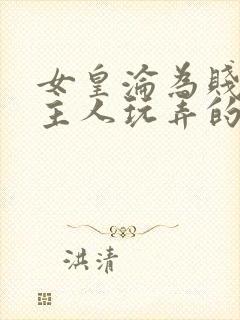 女皇淪為賤
主人玩弄的
洪清